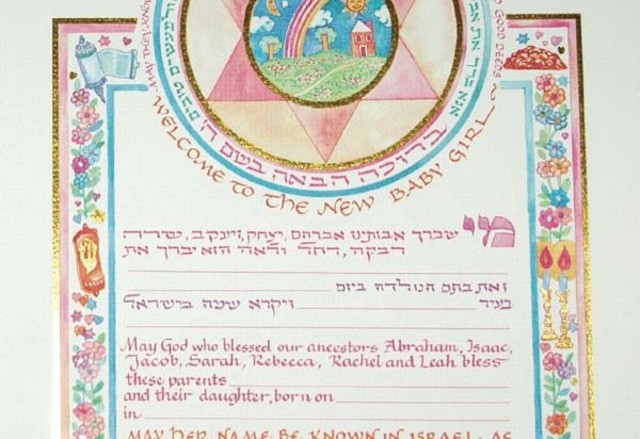 MAY THEY KNOW
GOOD DEEDS
ולמעשים טובים
ברוכה הבאה בשם ה'
WELCOME TO THE NEW BABY GIRL
מי שברך אבותינו אברהם, יצחק, ויעקב, שרה
רבקה, רחל ולאה הוא יברך את
ואת בתם הנולדה ביום
בעיר ויקרא שמה בישראל
May God who blessed our ancestors Abraham, Isaac,
Jacob, Sarah, Rebecca, Rachel and Leah bless
these parents
and their daughter, born on
in
MAY HER NAME BE KNOWN IN ISRAEL AS